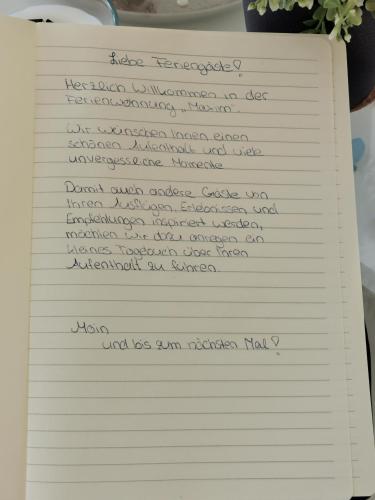 Liebe Feriengäste!
Herzlich Willkommen in der
Ferienwohnung „Maxim".
Wir wünschen Ihnen einen
schönen Aufenthalt und viele
unvergessliche Momente
Damit auch andere Gäste von
Ihren Ausflügen, Erlebnissen und
Empfehlungen inspiriert werden,
möchten wir dazu anregen ein
kleines Tagebuch über Ihren
Aufenthalt zu führen.
Moin
und bis zum nächsten Mal!